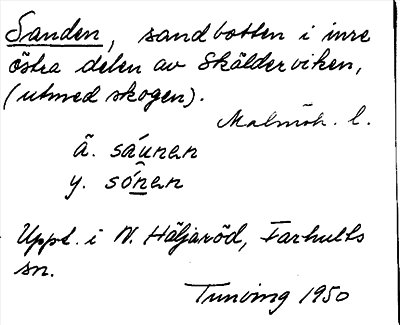 Sanden, sandbotten i inre
östra delen av Skälderviken,
(utmed skogen).
Malmöh. l.
ä. sáunen
y. sónen
Uppt. i N. Häljaröd, Farhults
sn.
Tuneving 1950